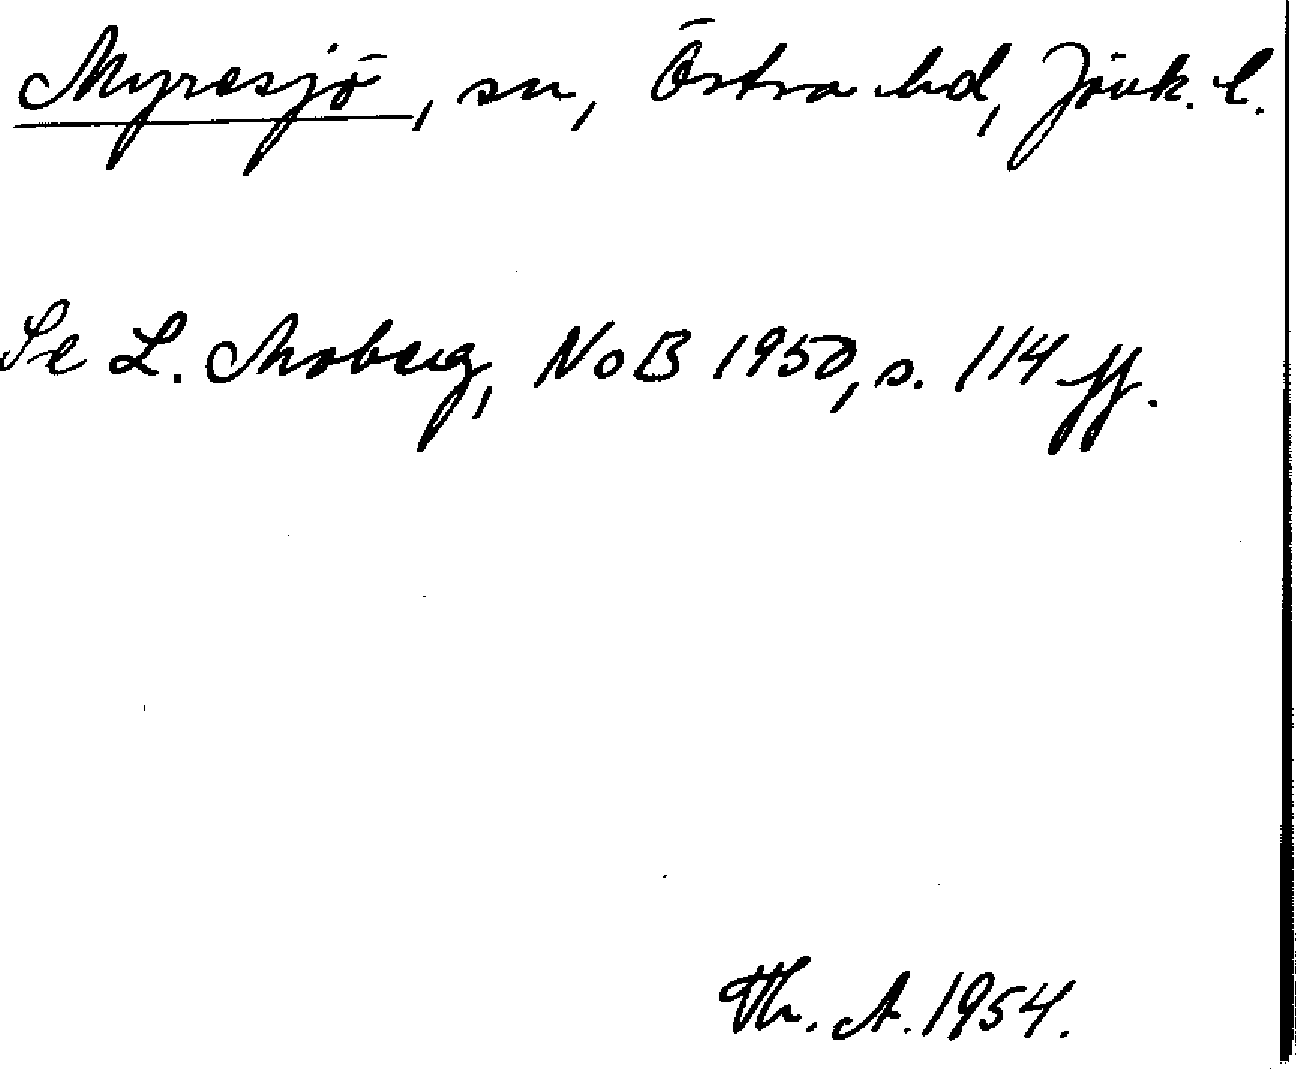 Myresjö, sn, Östra hd, Jönk. l.
Se L. Moberg, NoB 1950, s. 114 ff.
Th. A. 1954.